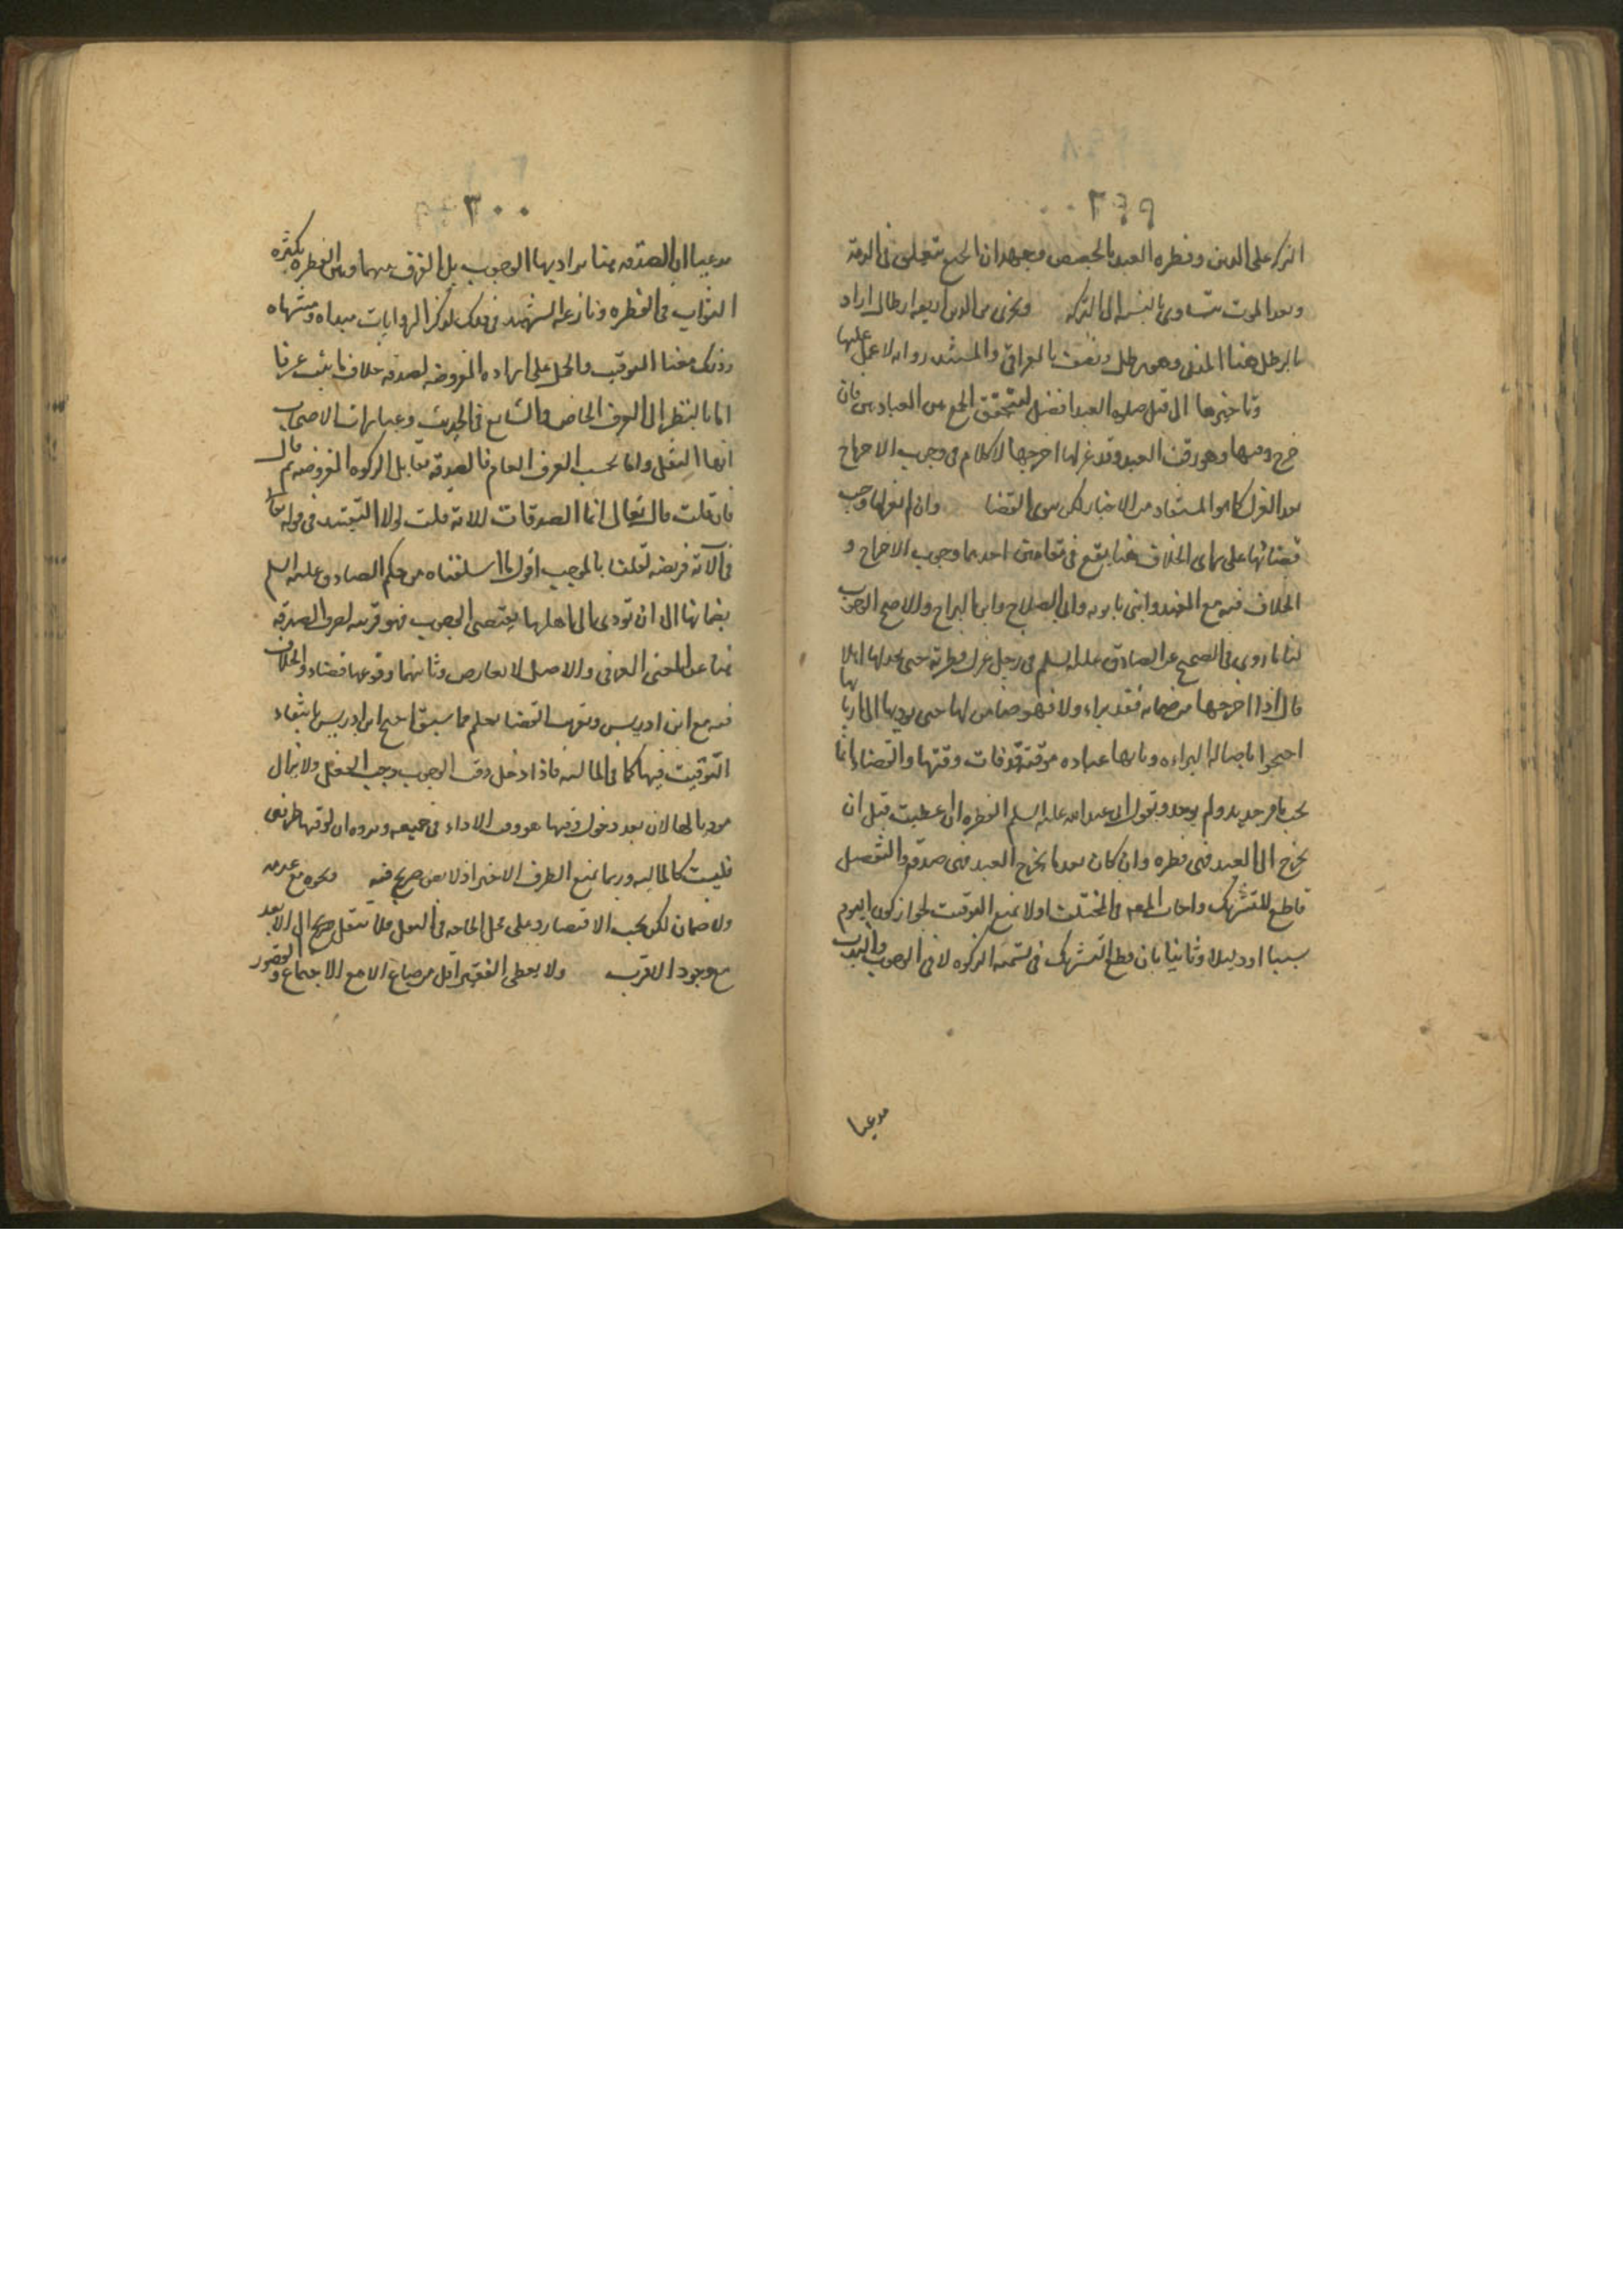 ٢٩٩
التركه على الدين وفطره العبد بالحصص وجهه ان الجميع متعلق فى الذمة
وبعد الموت يتساوى بالنسبه الى التركه ويجزى من اللبن اربعه ارطال اراد
بالرطل هنا المدنى وهو رطل ونصف بالعراقى والمستند روايه لا عمل عليها
وتاخيرها الى قبل صلوه العيد افضل ليتحقق الجمع بين العبادتين فان
خرج وقتها وهو وقت العيد وقد عزلها اخرجها لا كلام فى وجوب الاخراج
بعد العزل كما هو المستفاد من الاخبار لكن بنيه القضا وان لم يعزلها وجب
قضائها على راى الخلاف هنا يقع فى مقامين احدهما وجوب الاخراج و
الخلاف فيه مع المفيد وابنى بابويه وابى الصلاح وابن البراج والاصح الوجوب
لنا ما روى فى الصحيح عن الصادق عليه السلم فى رجل عزل فطرته حتى يجد لها اهلا
قال اذا اخرجها من ضمانه فقد براء ولا فهو ضامن لها حتى يوديها الى اربابها
احتجوا باصاله البراءه وبانها عباده موقته فات وقتها والقضاء انما
يجب بامر جديد ولم يوجد وبقول ابى عبد الله عليه السلم الفطره ان اعطيت قبل ان
يخرج الى العيد فهى فطره وان كان بعد ما يخرج العيد فهى صدقه والتفصيل
قاطع للتشريك واجاب المص فى المختلف اولا بمنع التوقيت لجواز كون اليوم
سببا او دليلا وثانيا بان قطع التشريك فى تسميه الزكوه لا فى الوجوب والندب
مدعيا
٣٠٠
مدعيا ان الصدقه هنا يراد بها الوجوب بل الفرق بينهما وبين الفطره بكثره
الثواب فى الفطره ونازعه الشهيد فى ذلك لذكر الروايات مبداه ومنتهاه
وذلك معنا التوقيت والحمل على اراده المفروضه لصدقه خلاف ما يثبت عرفا
اما بالنظر الى العرف الخاص والشايع فى الحديث وعبارات الاصحاب
انها النفل واما بحسب العرف العام فالصدقه تقابل الزكوه المفروضه ثم قال
فان قلت قال تعالى انما الصدقات الاية قلت لولا التقييد فى قوله تعالى
فى الآية فريضه لقلنا بالموجب اقول ما اسلفناه من حكم الصادق عليه السلم
بضمانها الى ان تودى الى اهلها يقتضى الوجوب فهو قرينه لصرف الصدقه
هنا عن المعنى العرفى والاصل لا يعارض وثانيهما وقوعها قضاء والخلاف
فيه مع ابن ادريس وثبوت القضا يعلم مما سبق احتج ابن ادريس بانتفاء
التوقيت فيها كما فى الماليه فاذا دخل وقت الوجوب وجب الفعل ولا يزال
موديا لها لان بعد دخول وقتها هو وقت الاداء فى جميعه ويرده ان لوقتها طرفين
فليست كالماليه وربما يمنع الطرف الاخير اذ لا نص صريح فيه ونحوه مع عدمه
ولا ضمان لكن يجب الاقتصار على محل الحاجه فى النقل فلا ينتقل صريح الى الابعد
مع وجود الاقرب ولا يعطى الفقير اقل من صاع الا مع الاجتماع والقصور